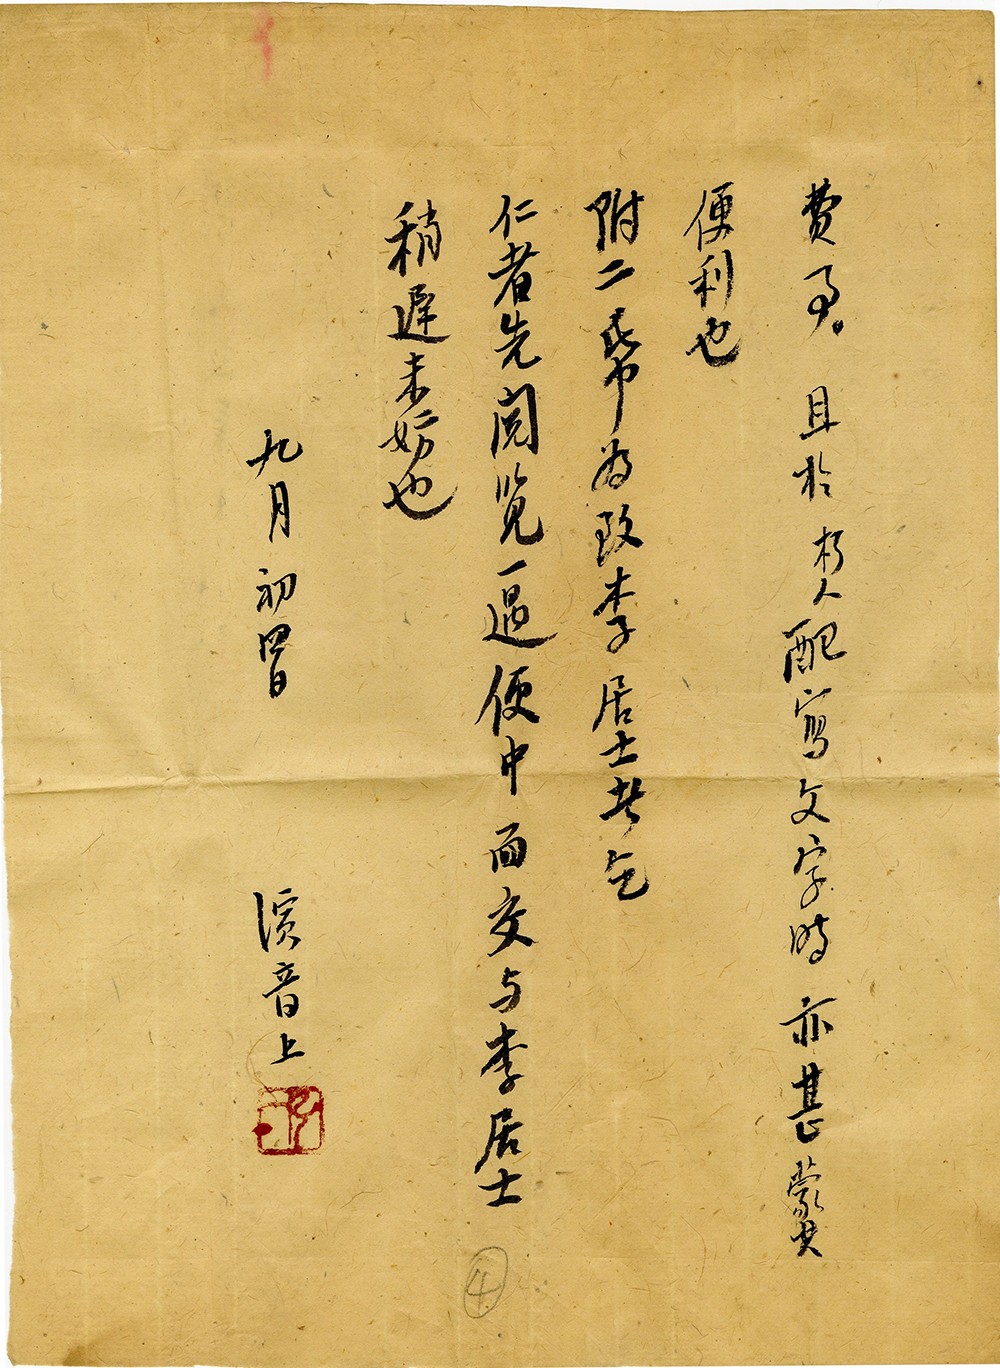 费事。且於朽人配寫文字時亦甚蒙其
便利也
附二紙为致李居士者乞
仁者先阅览一過便中面交与李居士
稍遲未妨也
九月初四日
演音上
④